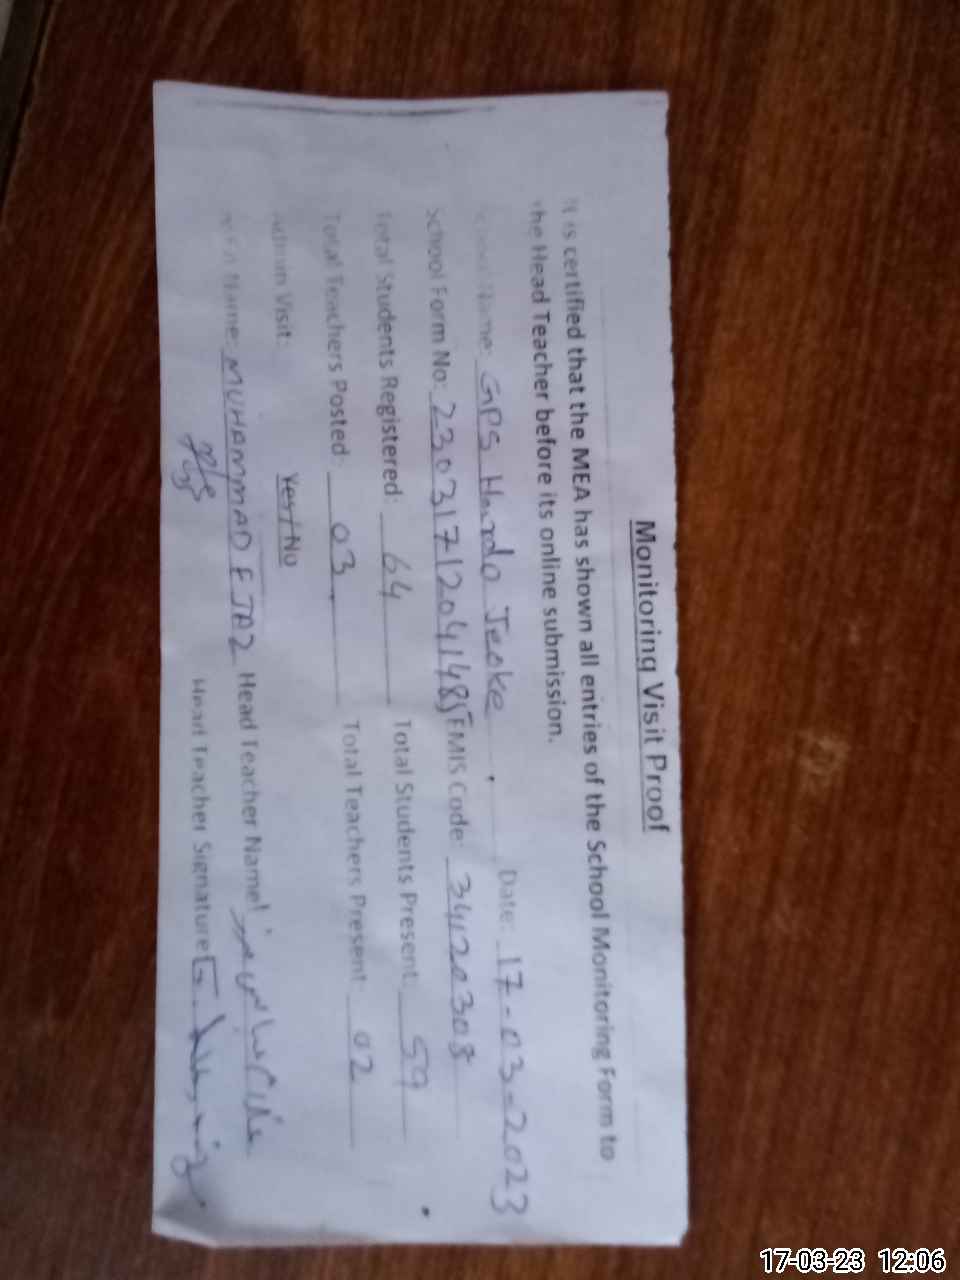 Monitoring Visit Proof
It is certified that the MEA has shown all entries of the School Monitoring Form to
the Head Teacher before its online submission.
School Name: GPS Hardo Jeoke Date: 17-03-2023
School Form No: 23031712041485 EMIS Code: 34120308
Total Students Registered: 64 Total Students Present: 59
Total Teachers Posted: 03 Total Teachers Present: 02
Admin Visit: Yes/No
Name: MUHAMMAD EJAZ Head Teacher Name:
Head Teacher Signature:
17-03-23 12:06